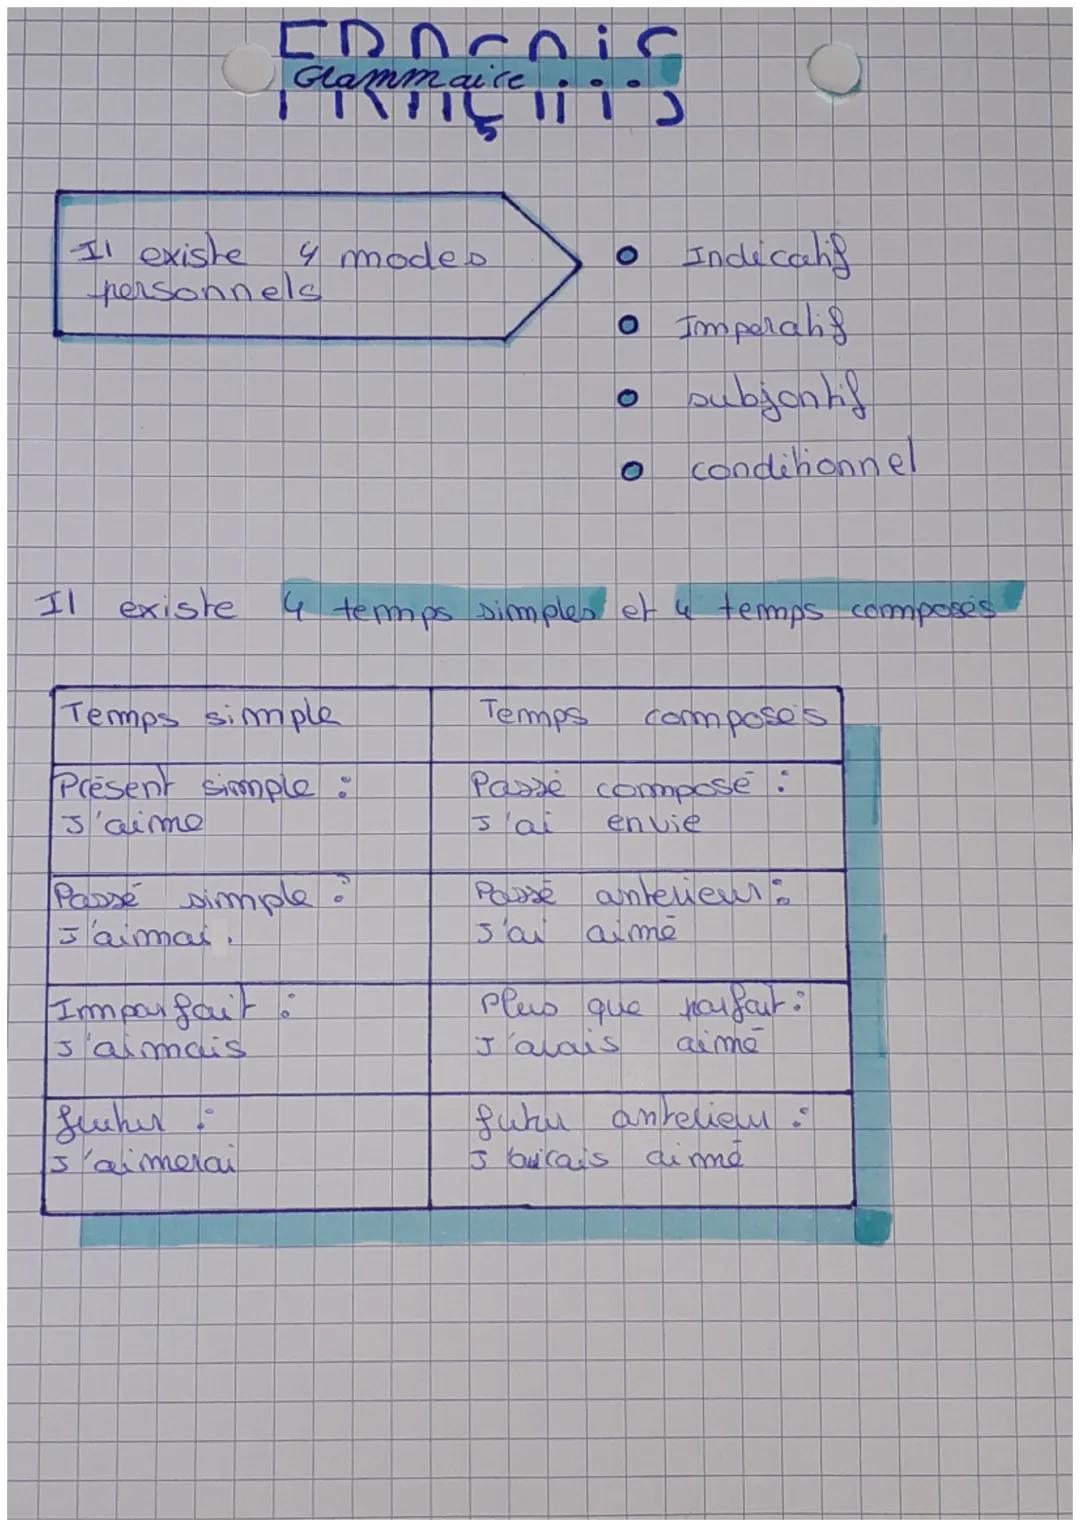 Français
Grammaire...
Il existe 4 modes
personnels
Indicatif
Imperatif
subjontif
conditionnel
Il existe 4 temps simples et 4 temps composés
Temps simple
Temps composés
Présent simple :
J'aime
Passé composé :
J'ai envie
Passé simple :
J'aimai.
Passé anterieur :
J'ai aimé
Imparfait :
J'aimais
Plus que parfait :
J'avais aimé
futur :
J'aimerai
futur anterieur :
J'aurais aimé